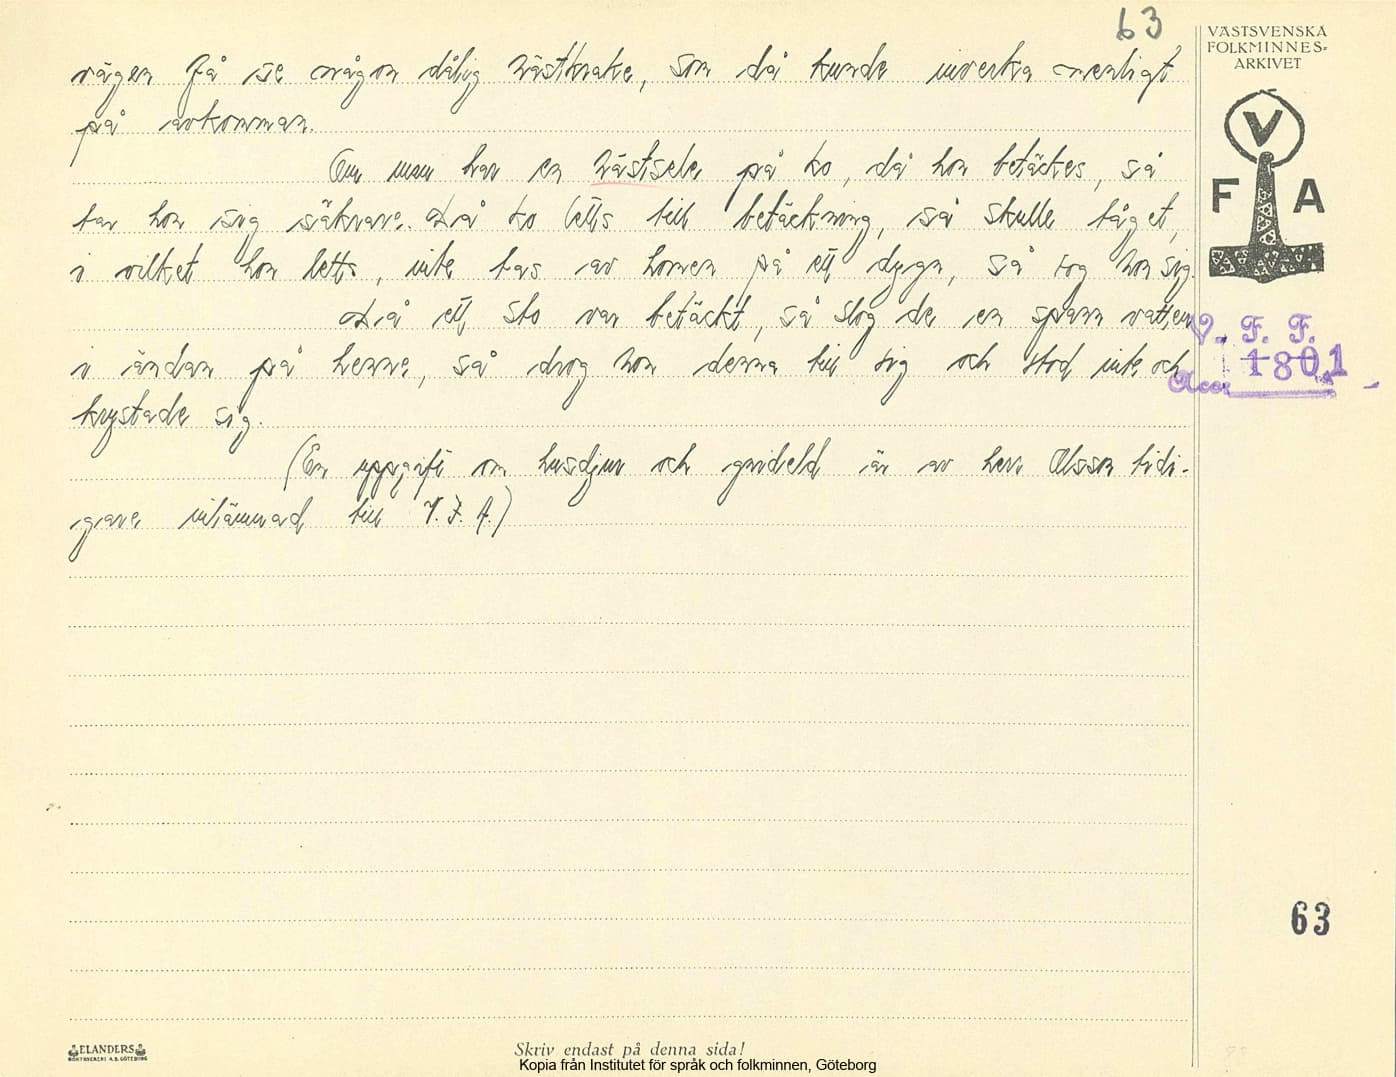 63
VÄSTSVENSKA
FOLKMINNES-
ARKIVET
V
F A
vägen få se någon dålig hästkrake, som då kunde inverka menligt
på avkomman.
Om man har en hästsele på ko, då hon betäckes, så
tar hon sig säkrare. Då ko letts till betäckning, så skulle tåget,
i vilket hon letts, inte tas av hornen på ett dygn, så tog hon sig.
Då ett sto var betäckt, så slog de en spann vatten
i ändan på henne, så drog hon denna till sig och stod inte och
krystade sig.
(En uppgift om husdjur och gnideld är av herr Olsson tidi-
gare inlämnad till V.F.A.)
V. F. F.
1801
Acc.
63
ELANDERS
BOKTRYCKERI A.B. GÖTEBORG
Skriv endast på denna sida!
Kopia från Institutet för språk och folkminnen, Göteborg